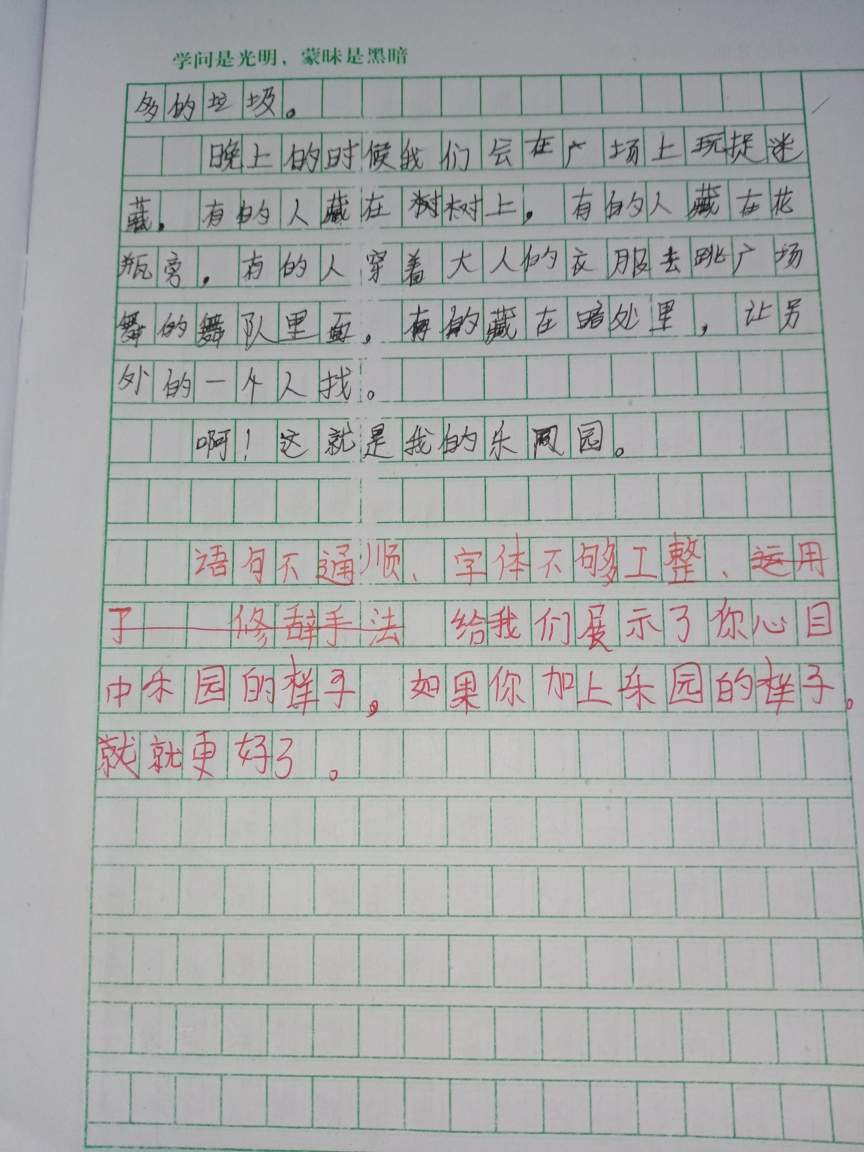 学问是光明，蒙昧是黑暗
多的垃圾。
晚上的时候我们会在广场上玩捉迷
藏，有的人藏在树树上，有的人藏在花
瓶旁，有的人穿着大人的衣服去跳广场
舞的舞队里面，有的藏在暗处里，让另
外的一个人找。
啊！这就是我的乐园。
语句不通顺、字体不够工整、运用
了 修辞手法 给我们展示了你心目
中乐园的样子，如果你加上乐园的样子。
就就更好了。